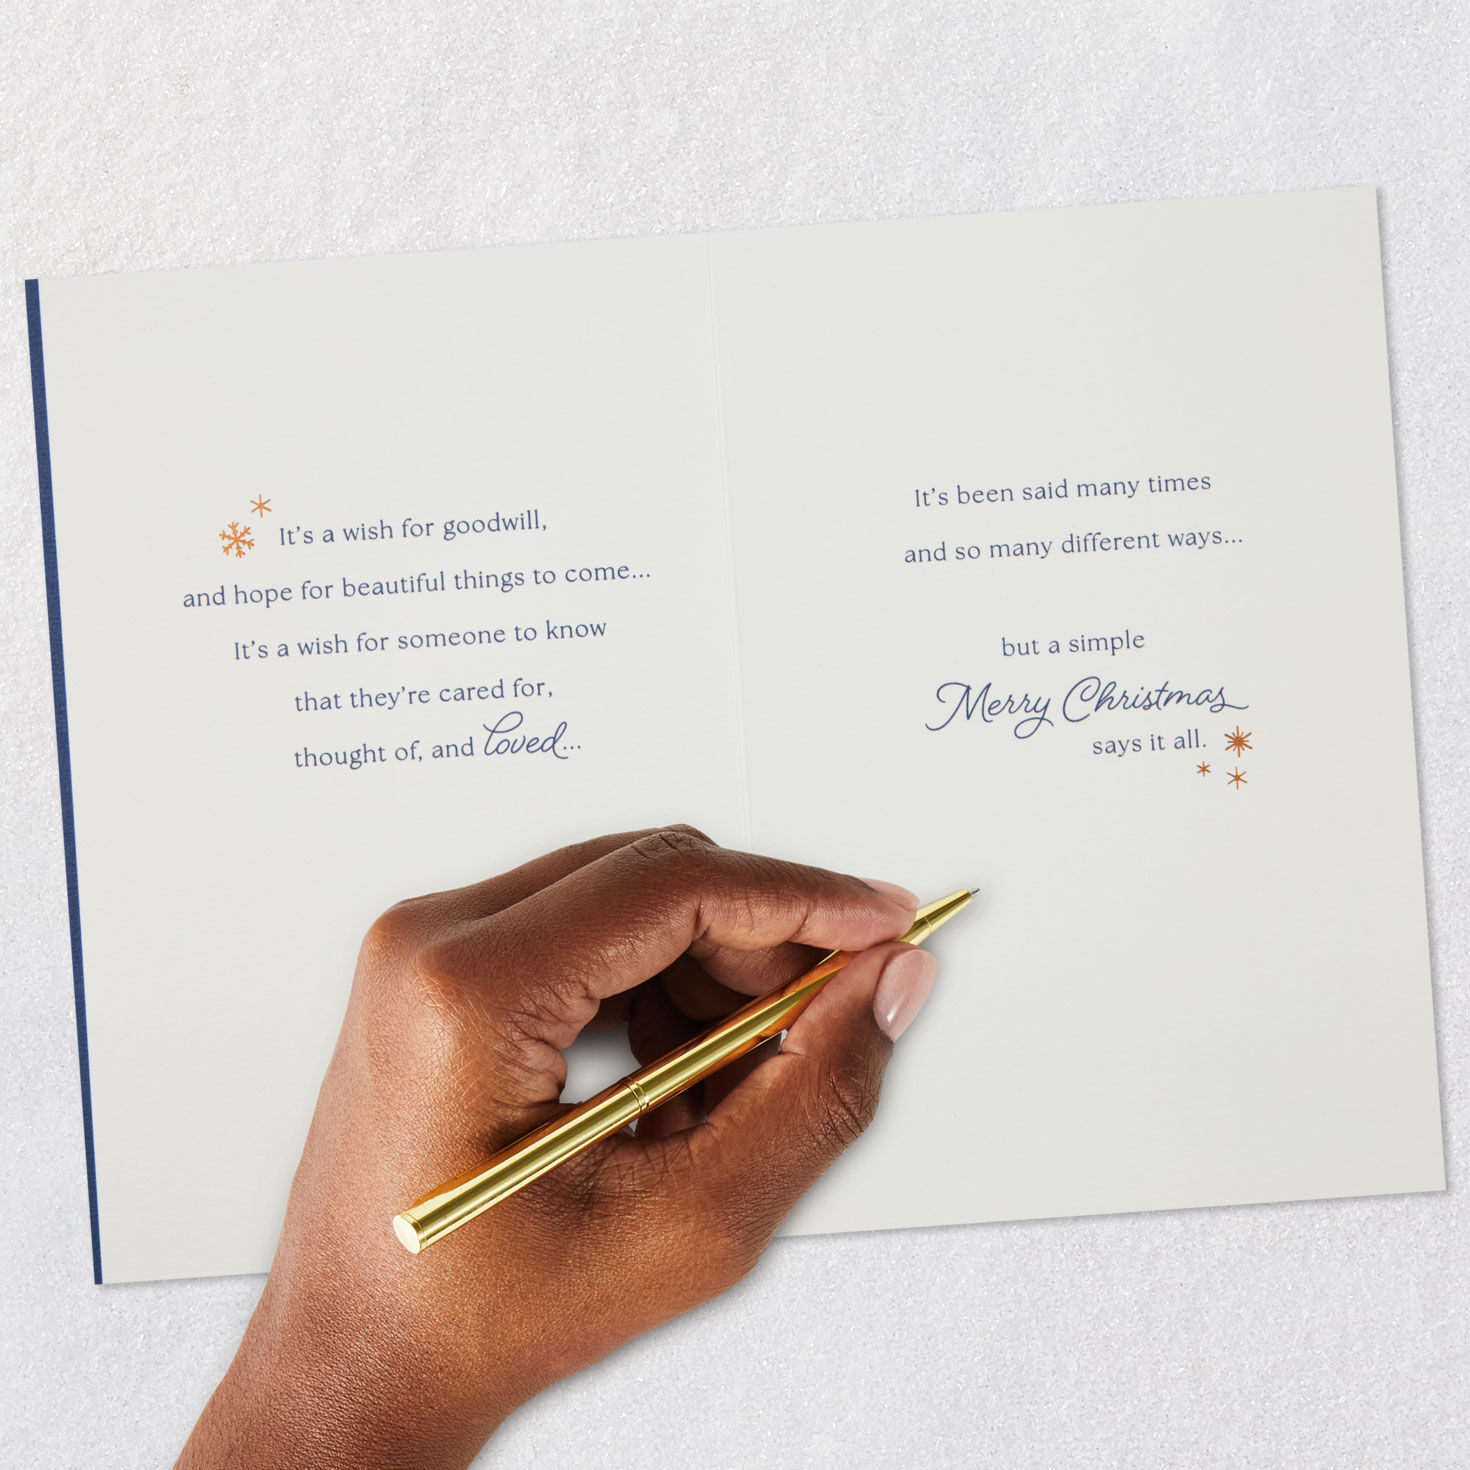 It's a wish for goodwill,
and hope for beautiful things to come...
It's a wish for someone to know
that they're cared for,
thought of, and loved...
It's been said many times
and so many different ways...
but a simple
Merry Christmas
says it all.